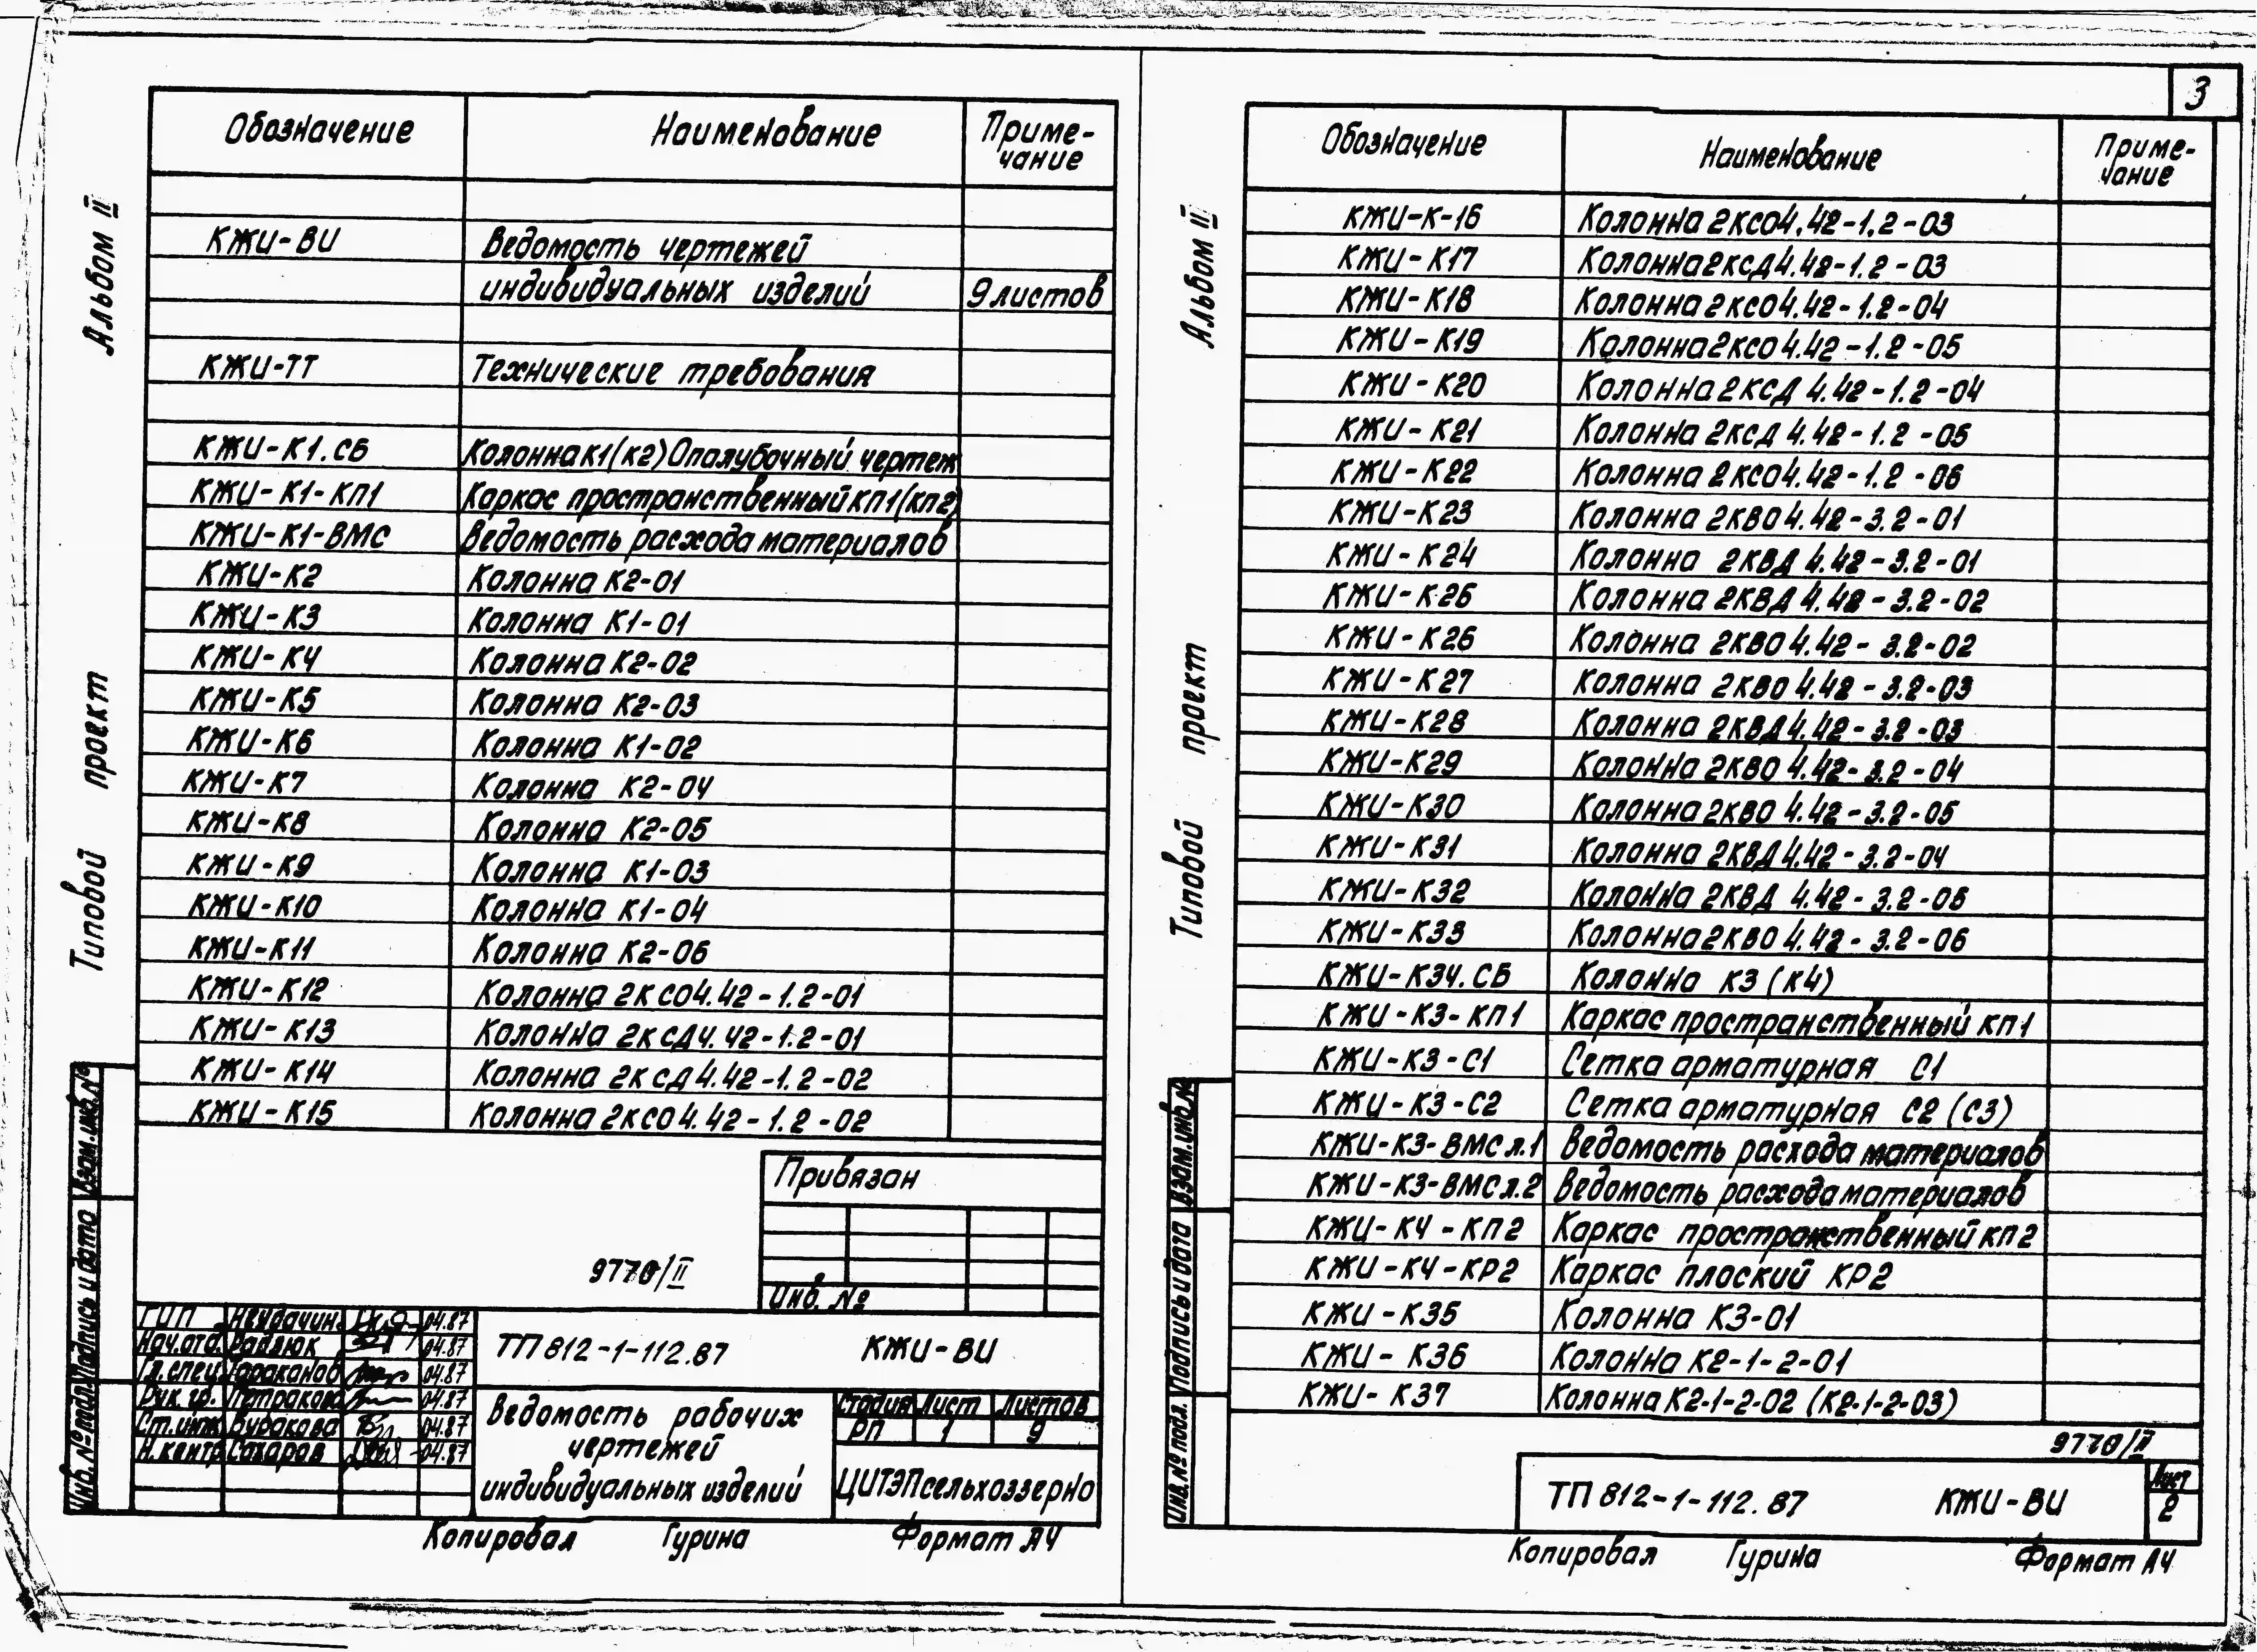 3
Альбом II
Типовой проект
Обозначение Наименование Приме-
чание
КЖИ-ВИ Ведомость чертежей
индивидуальных изделий 9 листов
КЖИ-ТТ Технические требования
КЖИ-К1.СБ Колонна К1(К2) Опалубочный чертеж
КЖИ-К1-КП1 Каркас пространственный КП1(КП2)
КЖИ-К1-ВМС Ведомость расхода материалов
КЖИ-К2 Колонна К2-01
КЖИ-К3 Колонна К1-01
КЖИ-К4 Колонна К2-02
КЖИ-К5 Колонна К2-03
КЖИ-К6 Колонна К1-02
КЖИ-К7 Колонна К2-04
КЖИ-К8 Колонна К2-05
КЖИ-К9 Колонна К1-03
КЖИ-К10 Колонна К1-04
КЖИ-К11 Колонна К2-06
КЖИ-К12 Колонна 2КСО4.42-1.2-01
КЖИ-К13 Колонна 2КСД4.42-1.2-01
КЖИ-К14 Колонна 2КСД4.42-1.2-02
КЖИ-К15 Колонна 2КСО4.42-1.2-02
Привязан
Инв. №
9770/II
ГИП Неудачин 04.87
Нач.отд. Радлюк 04.87
Гл.спец. Тараканов 04.87
Рук. гр. Петракова 04.87
Ст.инж. Буракова 04.87
Н.контр. Сахаров 04.87
ТП 812-1-112.87 КЖИ-ВИ
Ведомость рабочих
чертежей
индивидуальных изделий
Стадия Лист Листов
РП 1 9
ЦИТЭПсельхоззерно
Взам.инв.№
Подпись и дата
Инв.№ подл.
Копировал Гурина Формат А4
Альбом II
Типовой проект
Обозначение Наименование Приме-
чание
КЖИ-К-16 Колонна 2КСО4.42-1.2-03
КЖИ-К17 Колонна 2КСД4.42-1.2-03
КЖИ-К18 Колонна 2КСО4.42-1.2-04
КЖИ-К19 Колонна 2КСО4.42-1.2-05
КЖИ-К20 Колонна 2КСД 4.42-1.2-04
КЖИ-К21 Колонна 2КСД 4.42-1.2-05
КЖИ-К22 Колонна 2КСО4.42-1.2-06
КЖИ-К23 Колонна 2КВО4.42-3.2-01
КЖИ-К24 Колонна 2КВД 4.42-3.2-01
КЖИ-К25 Колонна 2КВД 4.42-3.2-02
КЖИ-К26 Колонна 2КВО4.42-3.2-02
КЖИ-К27 Колонна 2КВО4.42-3.2-03
КЖИ-К28 Колонна 2КВД4.42-3.2-03
КЖИ-К29 Колонна 2КВО 4.42-3.2-04
КЖИ-К30 Колонна 2КВО 4.42-3.2-05
КЖИ-К31 Колонна 2КВД4.42-3.2-04
КЖИ-К32 Колонна 2КВД 4.42-3.2-05
КЖИ-К33 Колонна 2КВО 4.42-3.2-06
КЖИ-К34.СБ Колонна К3 (К4)
КЖИ-К3-КП1 Каркас пространственный КП1
КЖИ-К3-С1 Сетка арматурная С1
КЖИ-К3-С2 Сетка арматурная С2 (С3)
КЖИ-К3-ВМС л.1 Ведомость расхода материалов
КЖИ-К3-ВМС л.2 Ведомость расхода материалов
КЖИ-К4-КП2 Каркас пространственный КП2
КЖИ-К4-КР2 Каркас плоский КР2
КЖИ-К35 Колонна К3-01
КЖИ-К36 Колонна К2-1-2-01
КЖИ-К37 Колонна К2-1-2-02 (К2-1-2-03)
9770/II
ТП 812-1-112.87 КЖИ-ВИ
Лист
2
Взам.инв.№
Подпись и дата
Инв.№ подл.
Копировал Гурина Формат А4